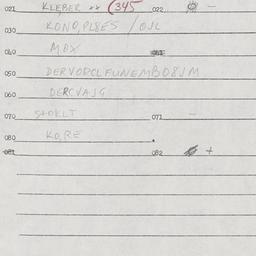 021 KLEBER ** (345 022 -
030 KONO,PL8ES / OJL
040 MBX
050 DERVODCLFUNEMBO8JM
060 DERCVAJG
070 SHOKLT 071 -
080 KO,RE
081 082 +